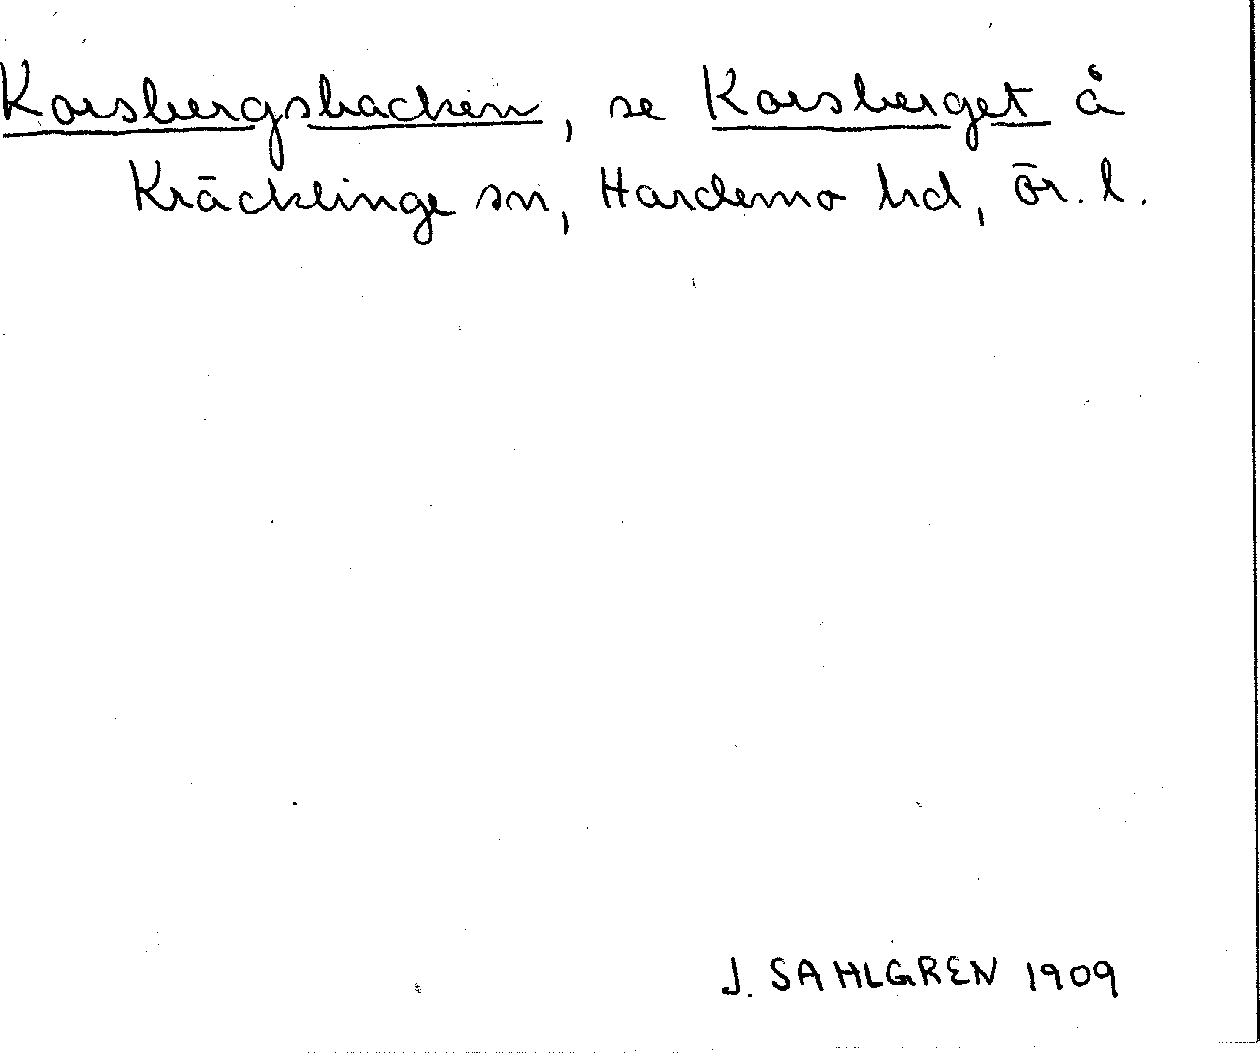 Korsbergsbacken, se Korsberget å
Kräcklinge sn, Hardemo hd, Ör. l.
J. SAHLGREN 1909